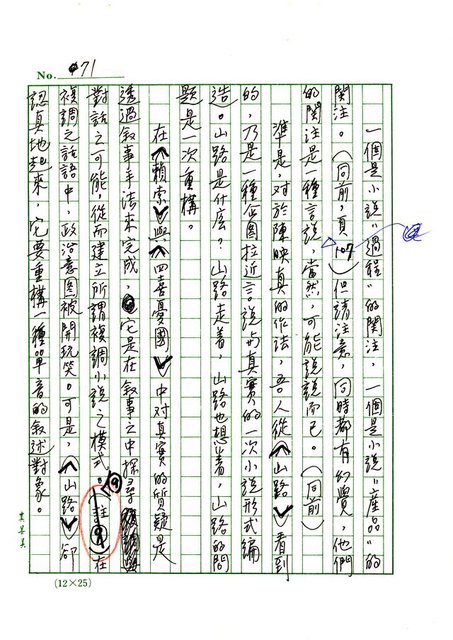 No. 71
一個是小說“過程”的關注，一個是小說“產品”的
關注。（同前，頁107）但請注意，同時都有幻覺，他們
的關注是一種言說，當然，可能說說而已。（同前）
準是，對於陳映真的作法，吾人從《山路》看到
的，乃是一種企圖拉近言說與真實的一次小說形式編
造。山路是什麼？山路走着，山路也想着，山路的問
題是一次重構。
在《賴索》與《四喜憂國》中對真實的質疑是
透過敘事手法來完成，它是在敘事之中探尋
對話之可能，從而建立所謂複調小說之模式。（註9）在
複調之話語中，政治意圖被開玩笑。可是，《山路》卻
認真地起來，它要重構一種單音的敘述對象。
(12×25)